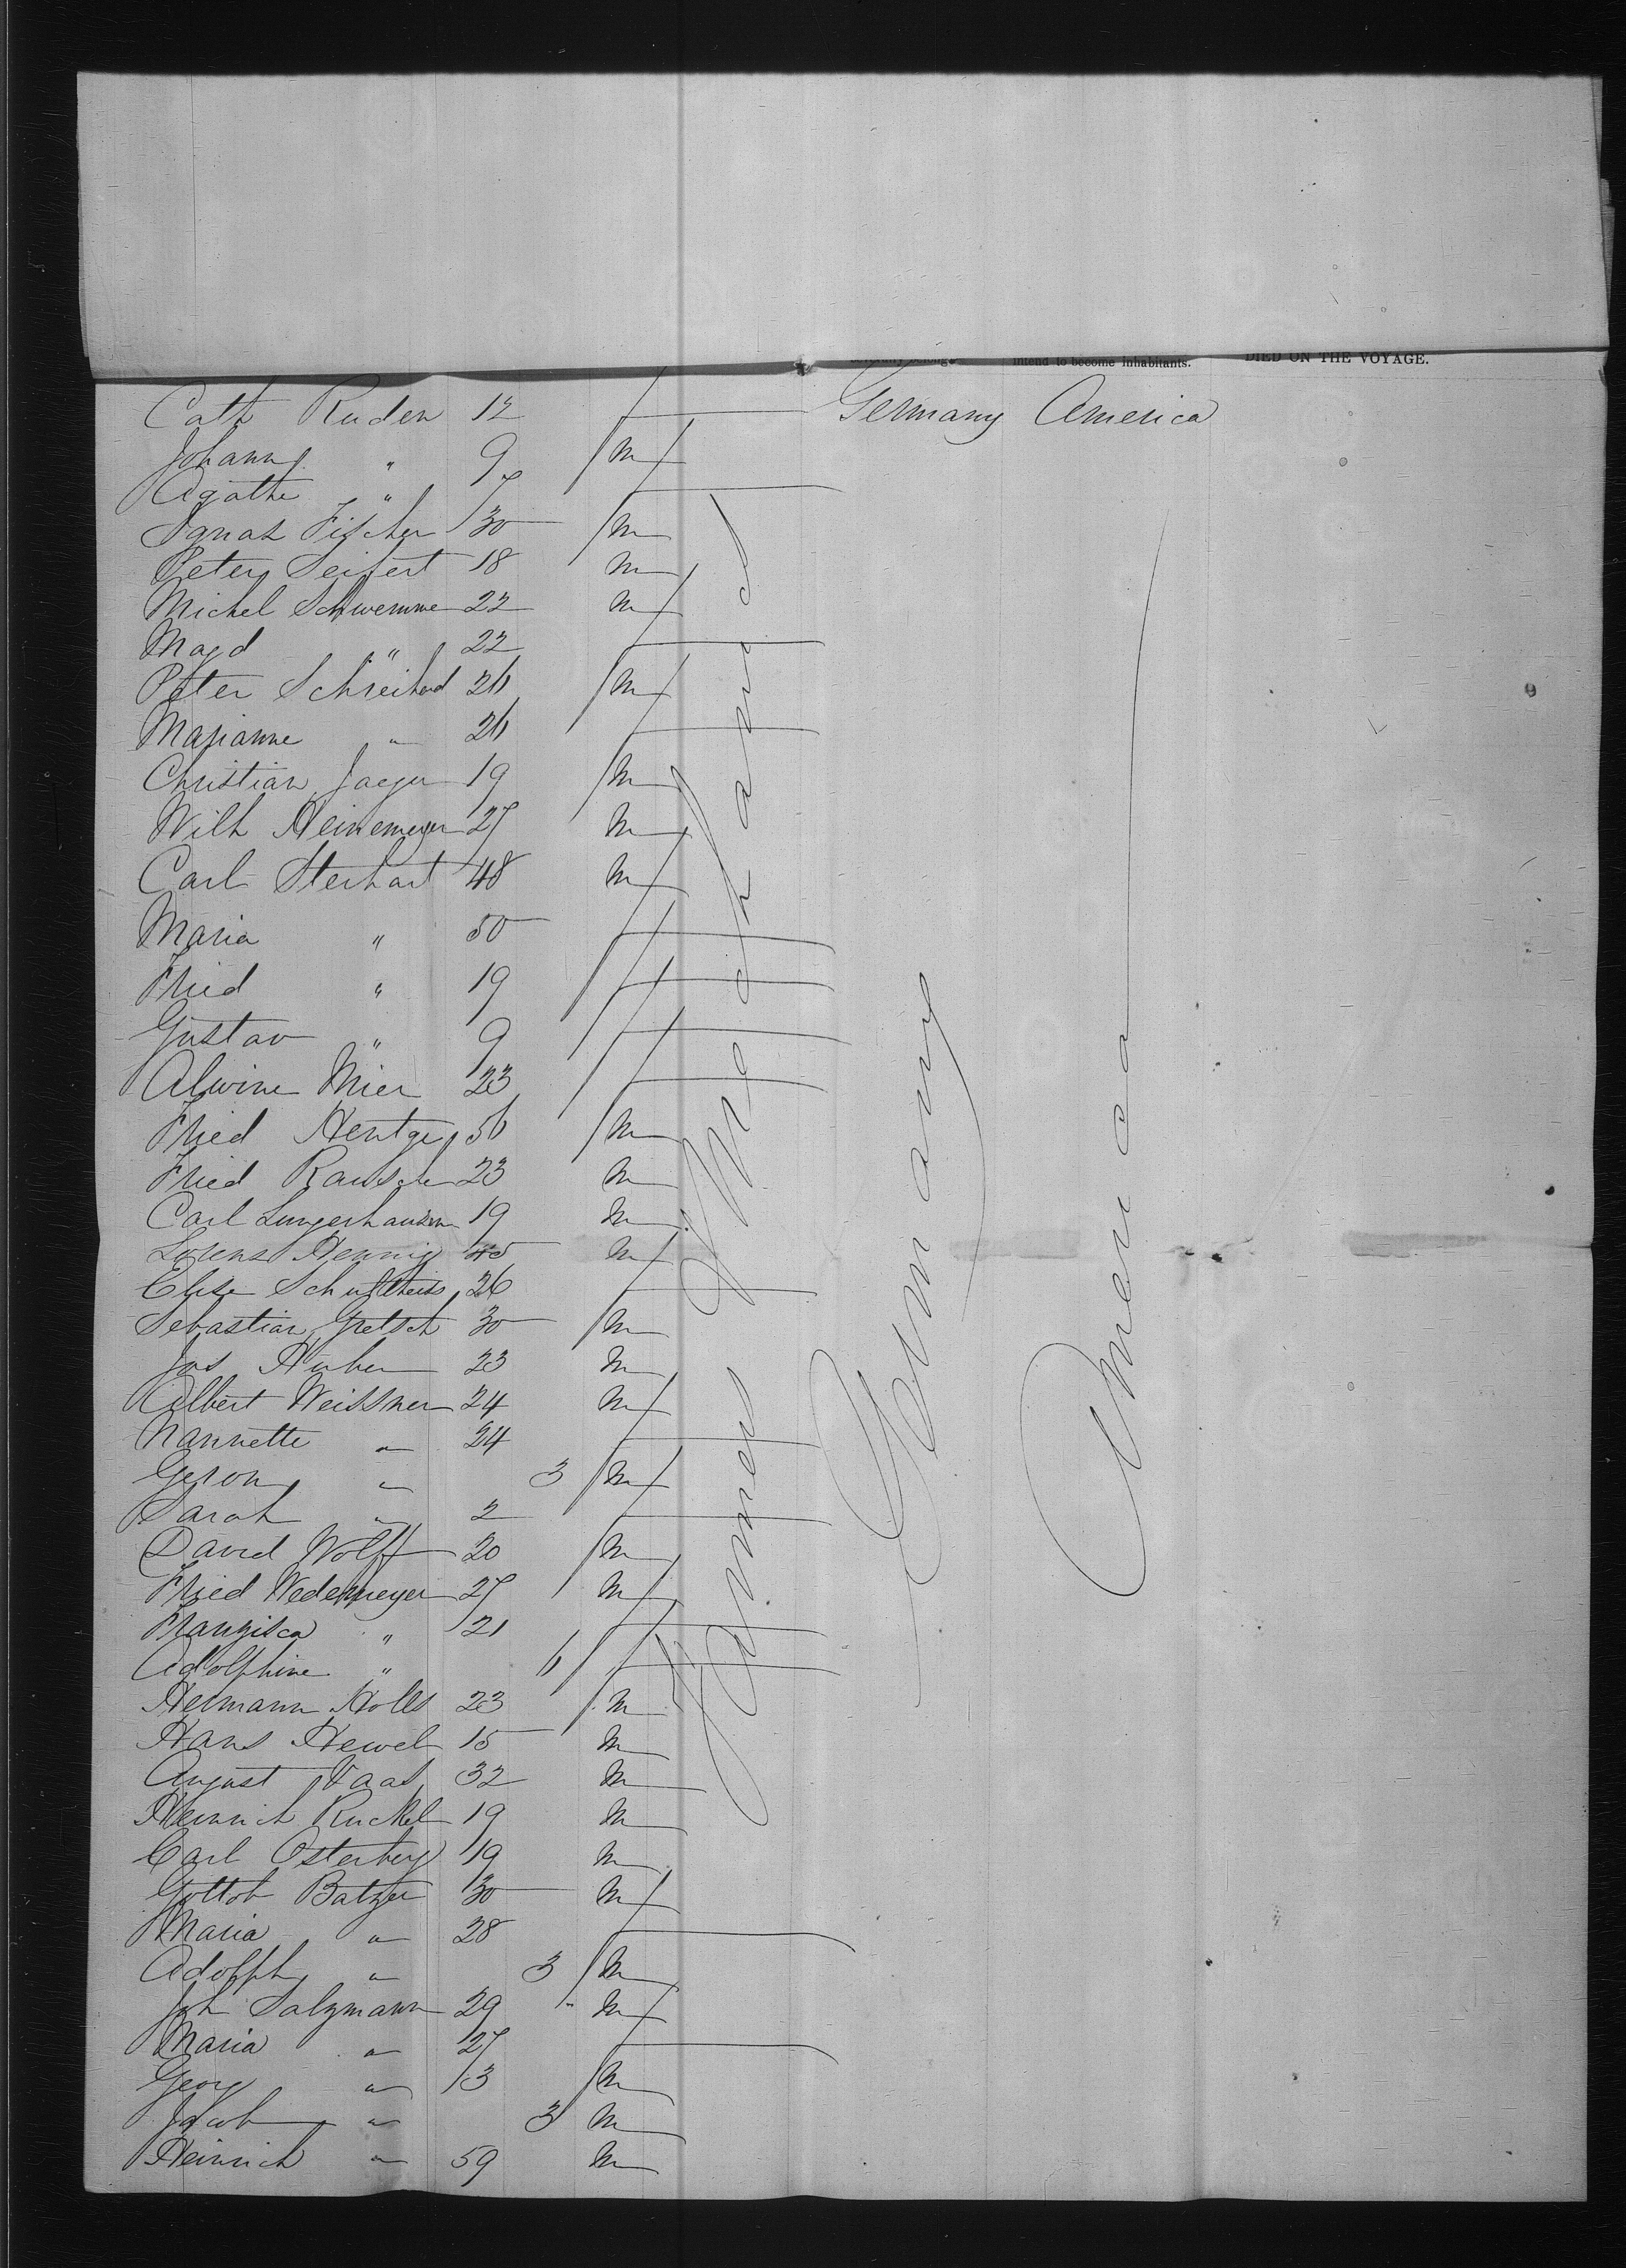 intend to become inhabitants. DIED ON THE VOYAGE.
Cath Ruden 12 Germany America
Johann " 9 m
Agathe " 7
Ignatz Fischer 30 m
Peter Seifert 18 m
Michel Schwemme 22 m
Magd " 22
Peter 26 m
Marianne " 26
Christian Jaeger 19 m
Wilh Heinemeyer 27 m
Carl Sterhart 48 m
Maria " 50
Fried " 19
Gustav " 9
Alwine Mier 23
Fried Hentge 56 m
Fried Rausche 23 m
Carl Lungershausen 19 m
Lorenz Hennig 45 m
Elise Schultheiss 26
Sebastian Gretsch 30 m
Jos Huber 23 m
Albert Weissner 24 m
Nannette " 24
Geson " 3 m
Sarah " 2
David Wolff 20 m
Fried Wedemeyer 27 m
Franzisca " 21
Adolphine " 6
Hermann Holls 23 m
Hans Hewel 15 m
August Vaas 32 m
Heinrich Ruckel 19 m
Carl Osterberg 19 m
Gottob Batzer 30 m
Maria " 28
Adolph " 3 m
Joh Salzmann 29 m
Maria " 27
Georg " 13 m
Jacob " 3 m
Heinrich " 59 m
Farmers & Mechanics
Germany
America